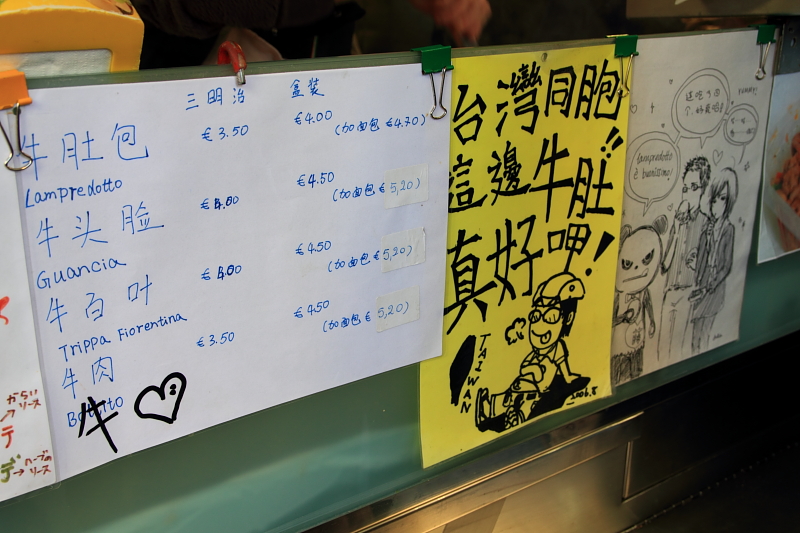 三明治 盒装
牛肚包 €3.50 €4.00 (加面包 €4.70)
Lampredotto
牛头脸 €4.00 €4.50 (加面包 €5,20)
Guancia
牛百叶 €4.00 €4.50 (加面包 €5,20)
Trippa Fiorentina
牛肉 €3.50 €4.50 (加面包 €5,20)
Bollito
牛
台灣同胞
這邊牛肚!!
真好呷!
TAIWAN
2006.8
lampredotto
è buonissimo!
からい
ソース
ハーブの
ソース